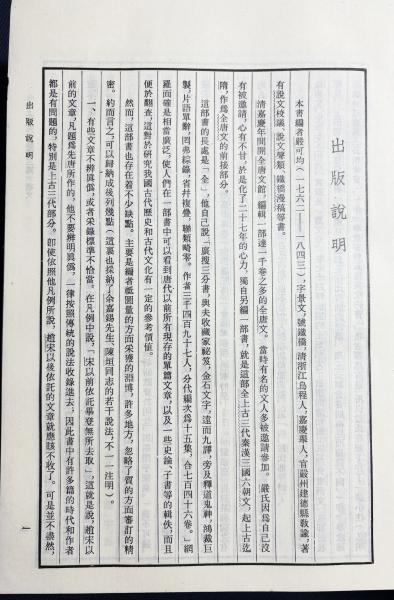 出版說明
本書編者嚴可均（一七六二——一八四三），字景文，號鐵橋，清浙江烏程人，嘉慶舉人，官嚴州建德縣敎諭，著
有說文校議、說文聲類、鐵橋漫稿等書。
清嘉慶年間開全唐文館，編輯一部達一千卷之多的全唐文。當時有名的文人多被邀請參加。嚴氏因爲自己沒
有被邀請，心有不甘，於是化了二十七年的心力，獨自另編一部書，就是這部全上古三代秦漢三國六朝文，起上古迄
隋，作爲全唐文的前接部分。
這部書的長處是「全」，他自己說「廣搜三分書，與夫收藏家祕笈，金石文字，遠而九譯，旁及釋道鬼神，鴻裁巨
製，片語單辭，罔弗綜錄，省幷複疊，聯類畸零。作者三千四百九十七人，分代編次爲十五集，合七百四十六卷。」網
羅而確是相當廣泛，使人們在一部書中可以看到唐代以前所有現存的單篇文章，以及一些史論、子書等的輯佚，而且
便於翻查，這對於硏究我國古代歷史和古代文化有一定的參考價値。
然而，這部書也存在着不少缺點。主要是編者祗圖量的方面采獲的淵博，許多地方，忽略了質的方面審訂的精
密。約而言之，可以歸納成後列幾點（這裏也採納了余嘉錫先生、陳垣同志的若干說法，不一一注明）。
一、有些文章不辨眞僞，或者采錄標準不恰當。在凡例中說，「宋以前依託畢登無所去取」，這就是說，趙宋以
前的文章，凡題爲先唐所作的，他不要辨明眞僞，一律按照傳統的說法收錄進去，因此書中有許多篇的時代和作者
都是有問題的，特別是上古三代部分。卽使依照他凡例所說，趙宋以後依託的文章就應該不收了。可是並不盡然，
出版說明
一